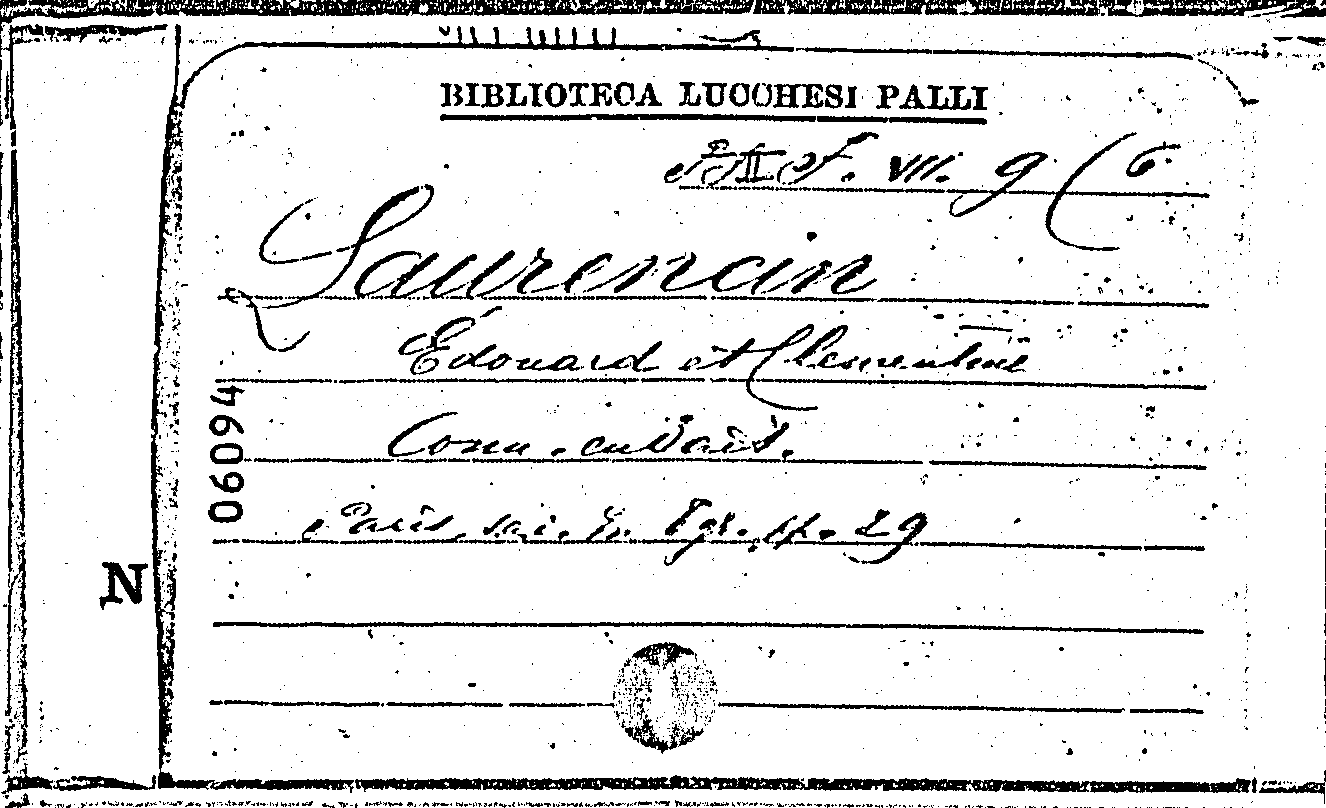 BIBLIOTECA LUCCHESI PALLI
F. VII. 9 (6
Laurencin
Édouard et Clementine
Com.-en Vaud.
Paris, s.a. 8. p. 29
06094
N